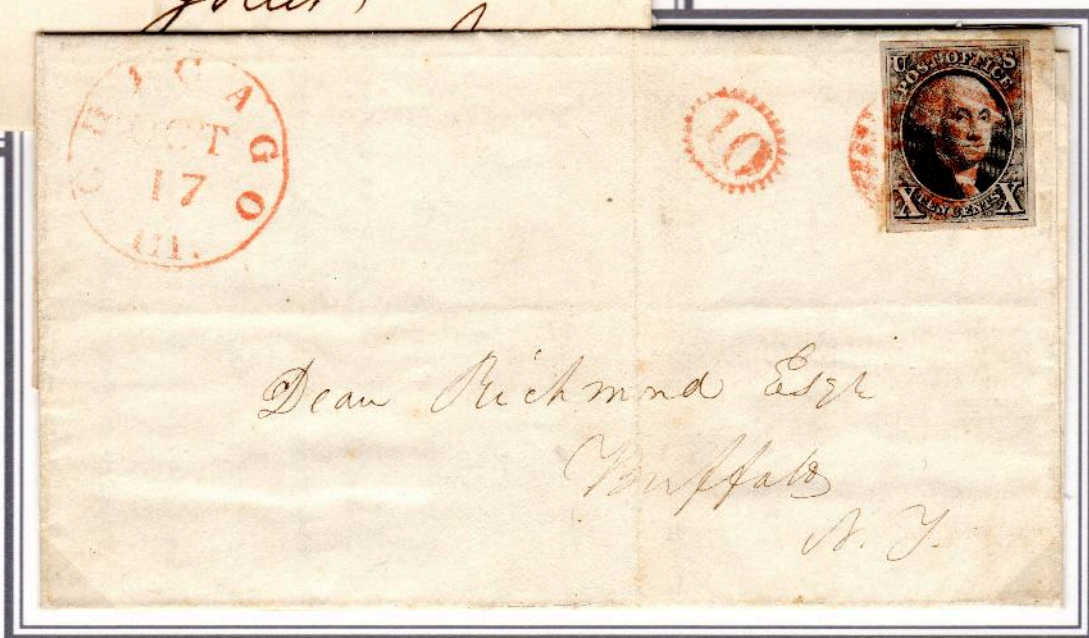 CHICAGO
OCT
17
Ill.
10
U S
POST OFFICE
X TEN CENTS X
Dean Richmond Esqr
Buffalo
N. Y.